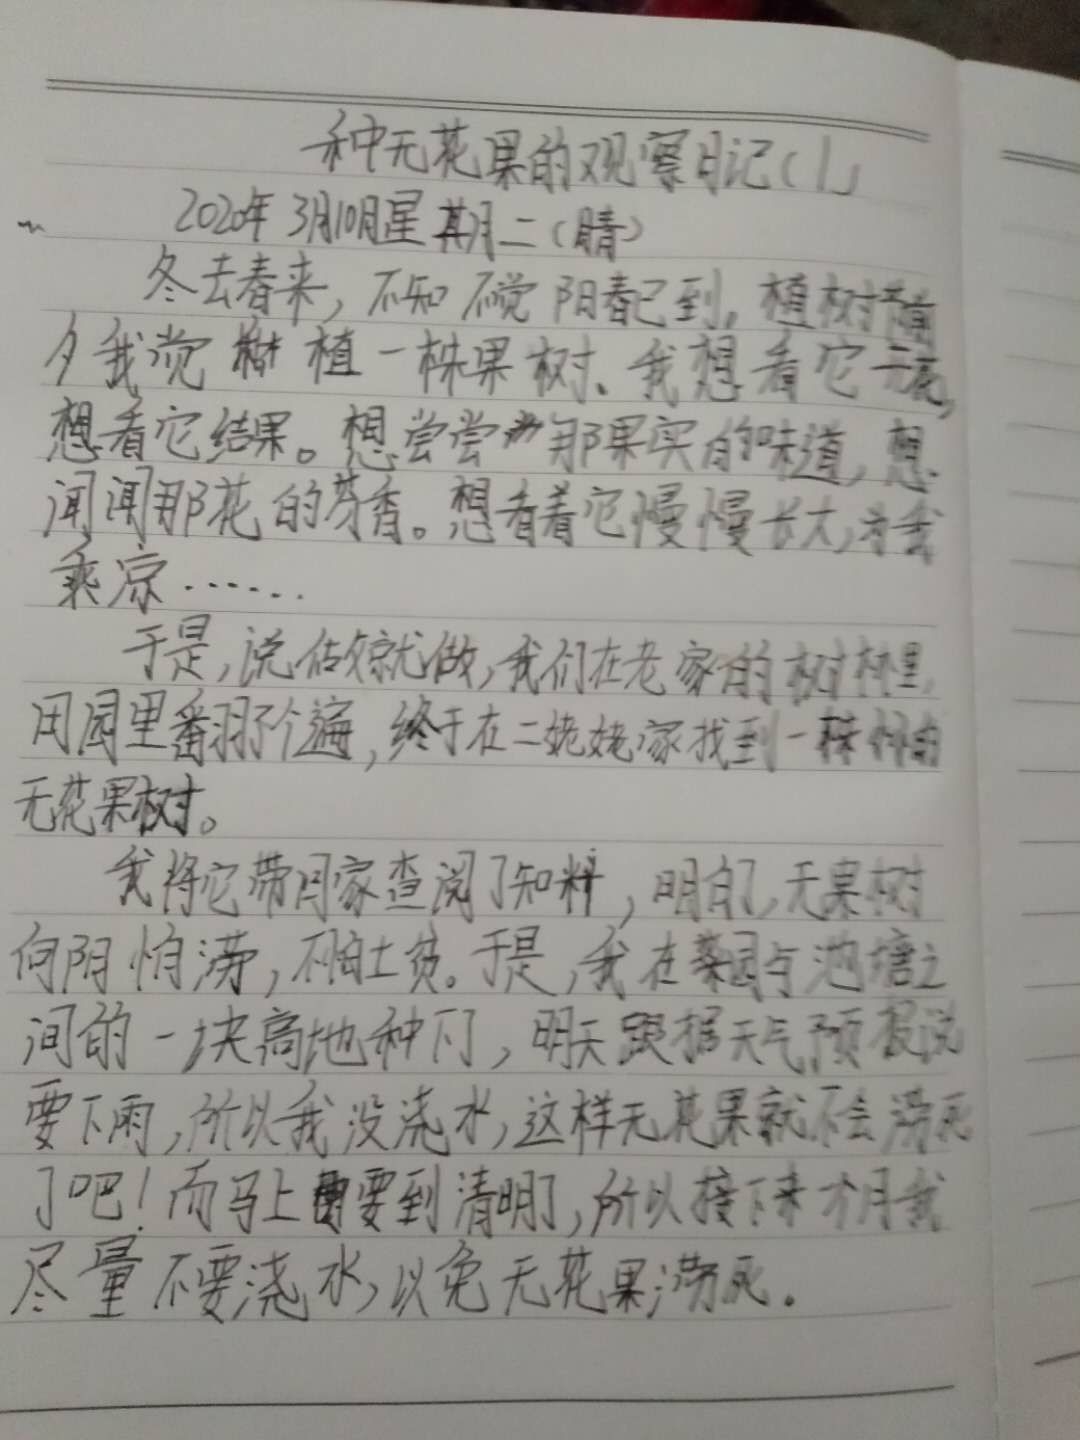 种无花果的观察日记(1)
2020年3月10日星期二(晴)
冬去春来,不知不觉阳春已到,植树前
夕我觉 植一株果树、我想看它开花,
想看它结果。想尝尝那果实的味道,想
闻闻那花的芬香。想看着它慢慢长大,为我
乘凉……
于是,说做就做,我们在老家的树林里,
田园里翻了个遍,终于在二姥姥家找到一株 的
无花果树。
我将它带回家查阅了知料,明白了,无果树
向阴怕涝,不怕土贫。于是,我在菜园与池塘之
间的一块高地种下了,明天跟据天气预报说
要下雨,所以我没浇水,这样无花果就不会涝死
了吧!而马上要到清明了,所以接下来个月我
尽量不要浇水,以免无花果涝死.